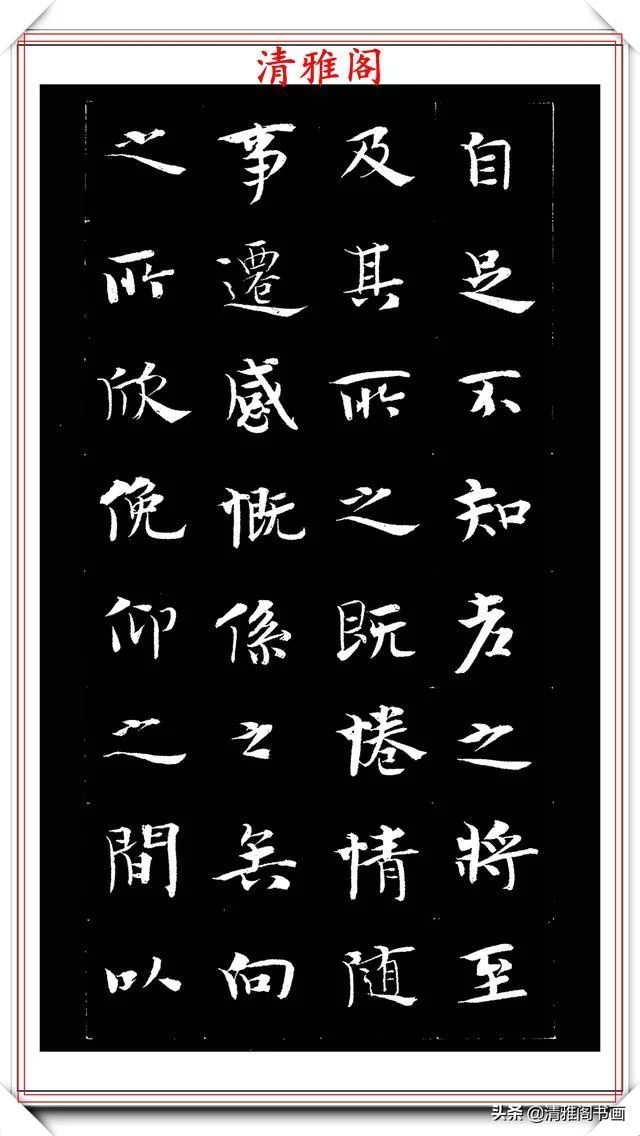 清雅阁
自足不知老之將至
及其所之既惓情隨
事遷感慨係之矣向
之所欣俛仰之間以
头条 @清雅阁书画